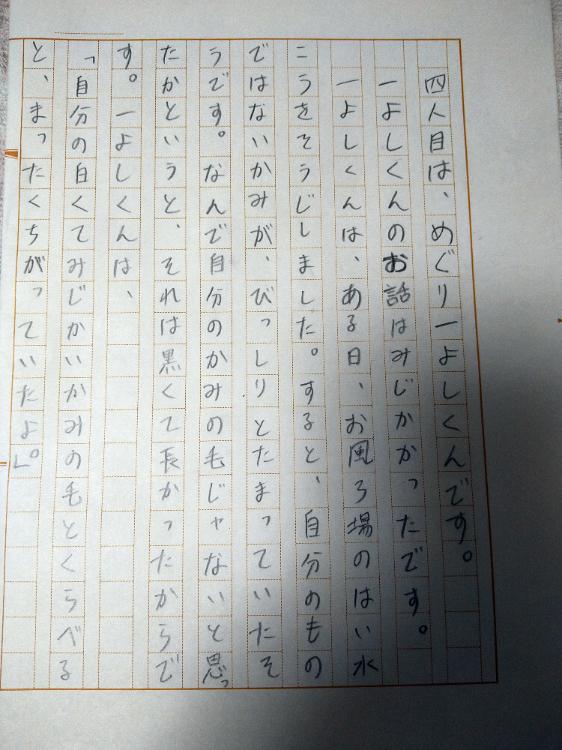 四人目は、めぐり一よしくんです。
一よしくんのお話はみじかかったです。
一よしくんは、ある日、お風ろ場のはい水
こうをそうじしました。すると、自分のもの
ではないかみが、びっしりとたまっていたそ
うです。なんで自分のかみの毛じゃないと思っ
たかというと、それは黒くて長かったからで
す。一よしくんは、
「自分の白くてみじかいかみの毛とくらべる
と、まったくちがっていたよ。」